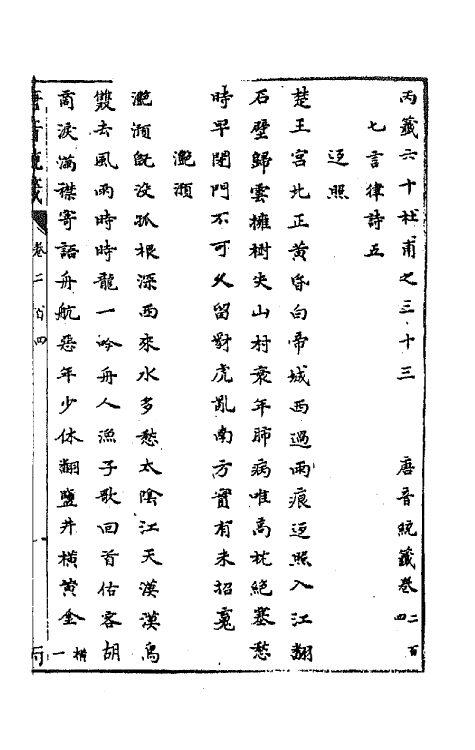 丙籖六十杜甫之三十三　唐音統籖卷二百四
七言律詩五
返照
楚王宮北正黃昏白帝城西過雨痕返照入江翻
石壁歸雲擁樹失山村衰年肺病唯高枕絕塞愁
時早閉門不可久留豺虎亂南方實有未招䰟
灔澦
灔澦旣没孤根深西來水多愁太陰江天漠漠鳥
雙去風雨時時龍一吟舟人漁子歌回首估客胡
商淚滿襟寄語舟航惡年少休翻鹽井橫黃金橫一
唐音統籖
卷二百四